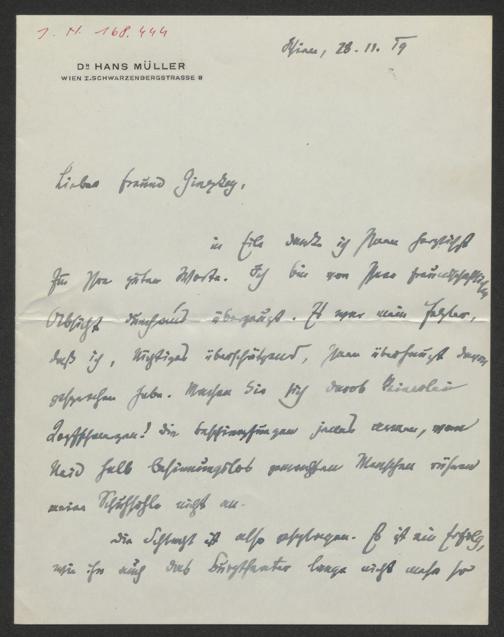 J. N. 168.444
Dr HANS MÜLLER
WIEN I. SCHWARZENBERGSTRASSE 8
Wien, 28. 11. 19
Lieber Freund Ginzkey,
in Eile danke ich Ihnen herzlichst
für Ihre guten Worte. Ich bin von Ihrer freundschaftlichen
Absicht durchaus überzeugt. Es war mein Fehler,
daß ich, Nichtiges überschätzend, Ihnen überhaupt davon
gesprochen habe. Machen Sie sich darob keinerlei
Kopfschmerzen! Die Beschimpfungen jenes armen, vom
Neid halb besinnungslos gemachten Menschen rühren
meine Schuhsohle nicht an.
Die Schlacht ist also geschlagen. Es ist ein Erfolg,
wie ihn auch das Burgtheater lange nicht mehr so